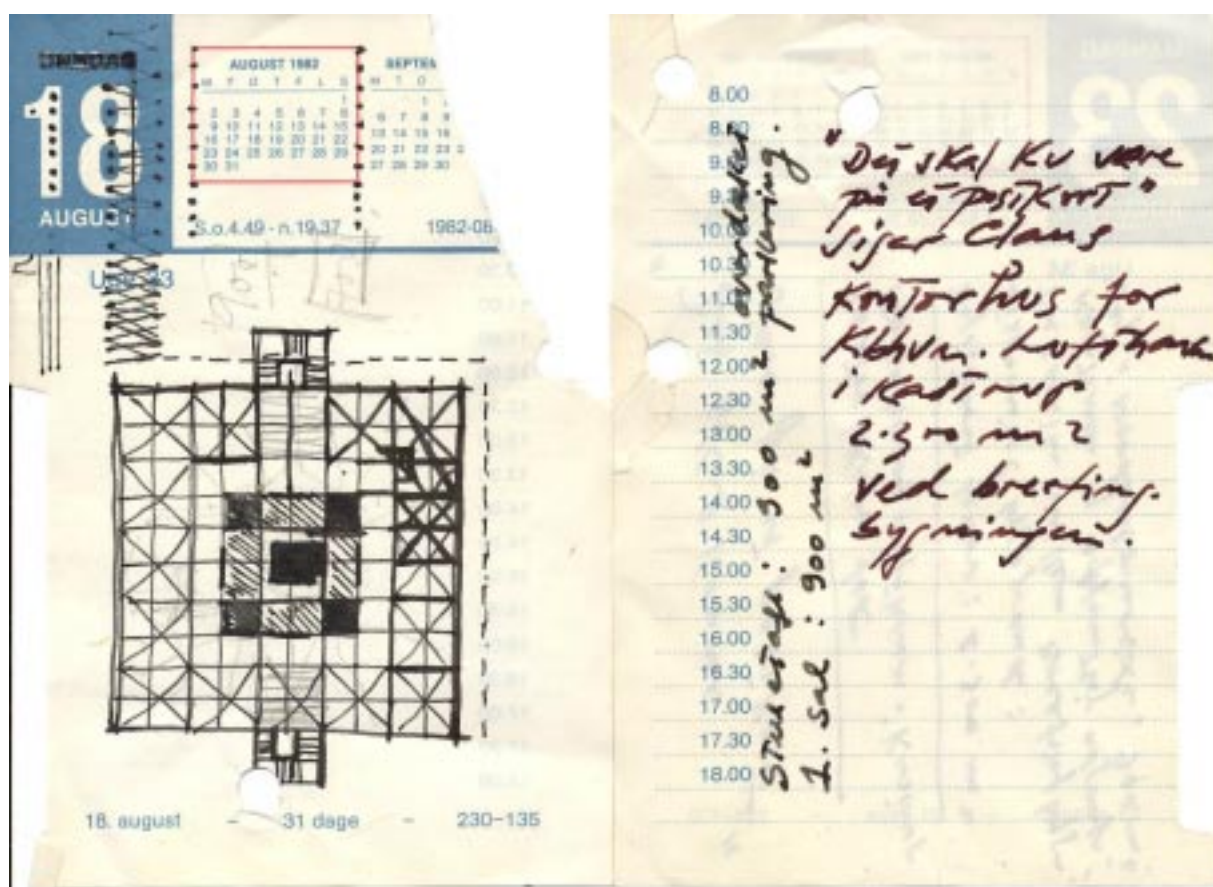 ONSDAG
18
AUGUST
AUGUST 1982
M T O T F L S
1
2 3 4 5 6 7 8
9 10 11 12 13 14 15
16 17 18 19 20 21 22
23 24 25 26 27 28 29
30 31
SEPTEM
M T O
6 7 8
13 14 15 16
20 21 22 23
27 28 29 30
S.o.4.49 - n.19.37
1982-08-
Uge 33
18. august – 31 dage – 230-135
8.00
8.30
9.
9.
10.0
10.3
11.0
11.30
12.00
12.30
13.00
13.30
14.00
14.30
15.00
15.30
16.00
16.30
17.00
17.30
18.00
Stueetage: 900 m² overdækket
parkering.
1. sal : 900 m²
"Det skal ku være
på et postkort"
siger Claus
Kontorhus for
Kbhvn. Lufthavn
i Kastrup
2.300 m2
ved breefing.
bygningen.